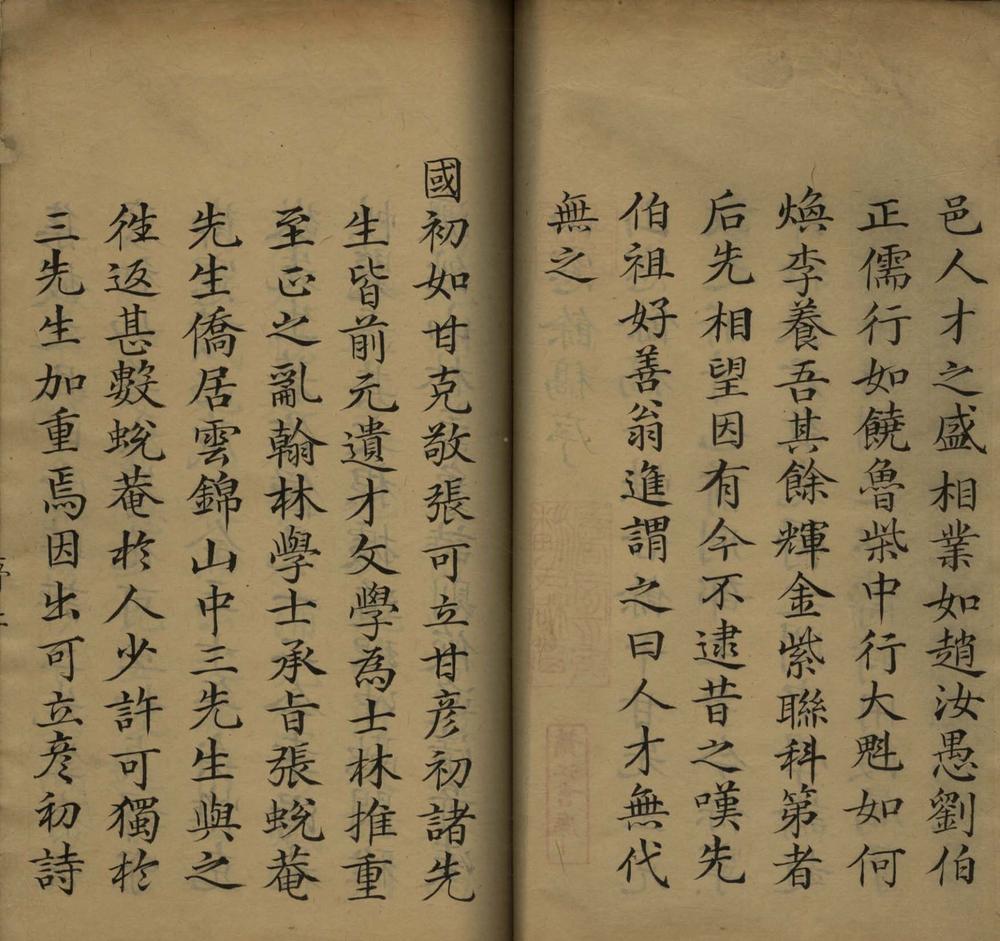 邑人才之盛相業如趙汝愚劉伯
正儒行如饒魯柴中行大魁如何
煥李養吾其餘輝金紫聯科第者
后先相望因有今不逮昔之嘆先
伯祖好善翁進謂之曰人才無代
無之
國初如甘克敬張可立甘彦初諸先
生皆前元遺才文學為士林推重
至正之亂翰林學士承旨張蛻菴
先生僑居雲錦山中三先生與之
徃返甚數蛻菴於人少許可獨於
三先生加重焉因出可立彦初詩